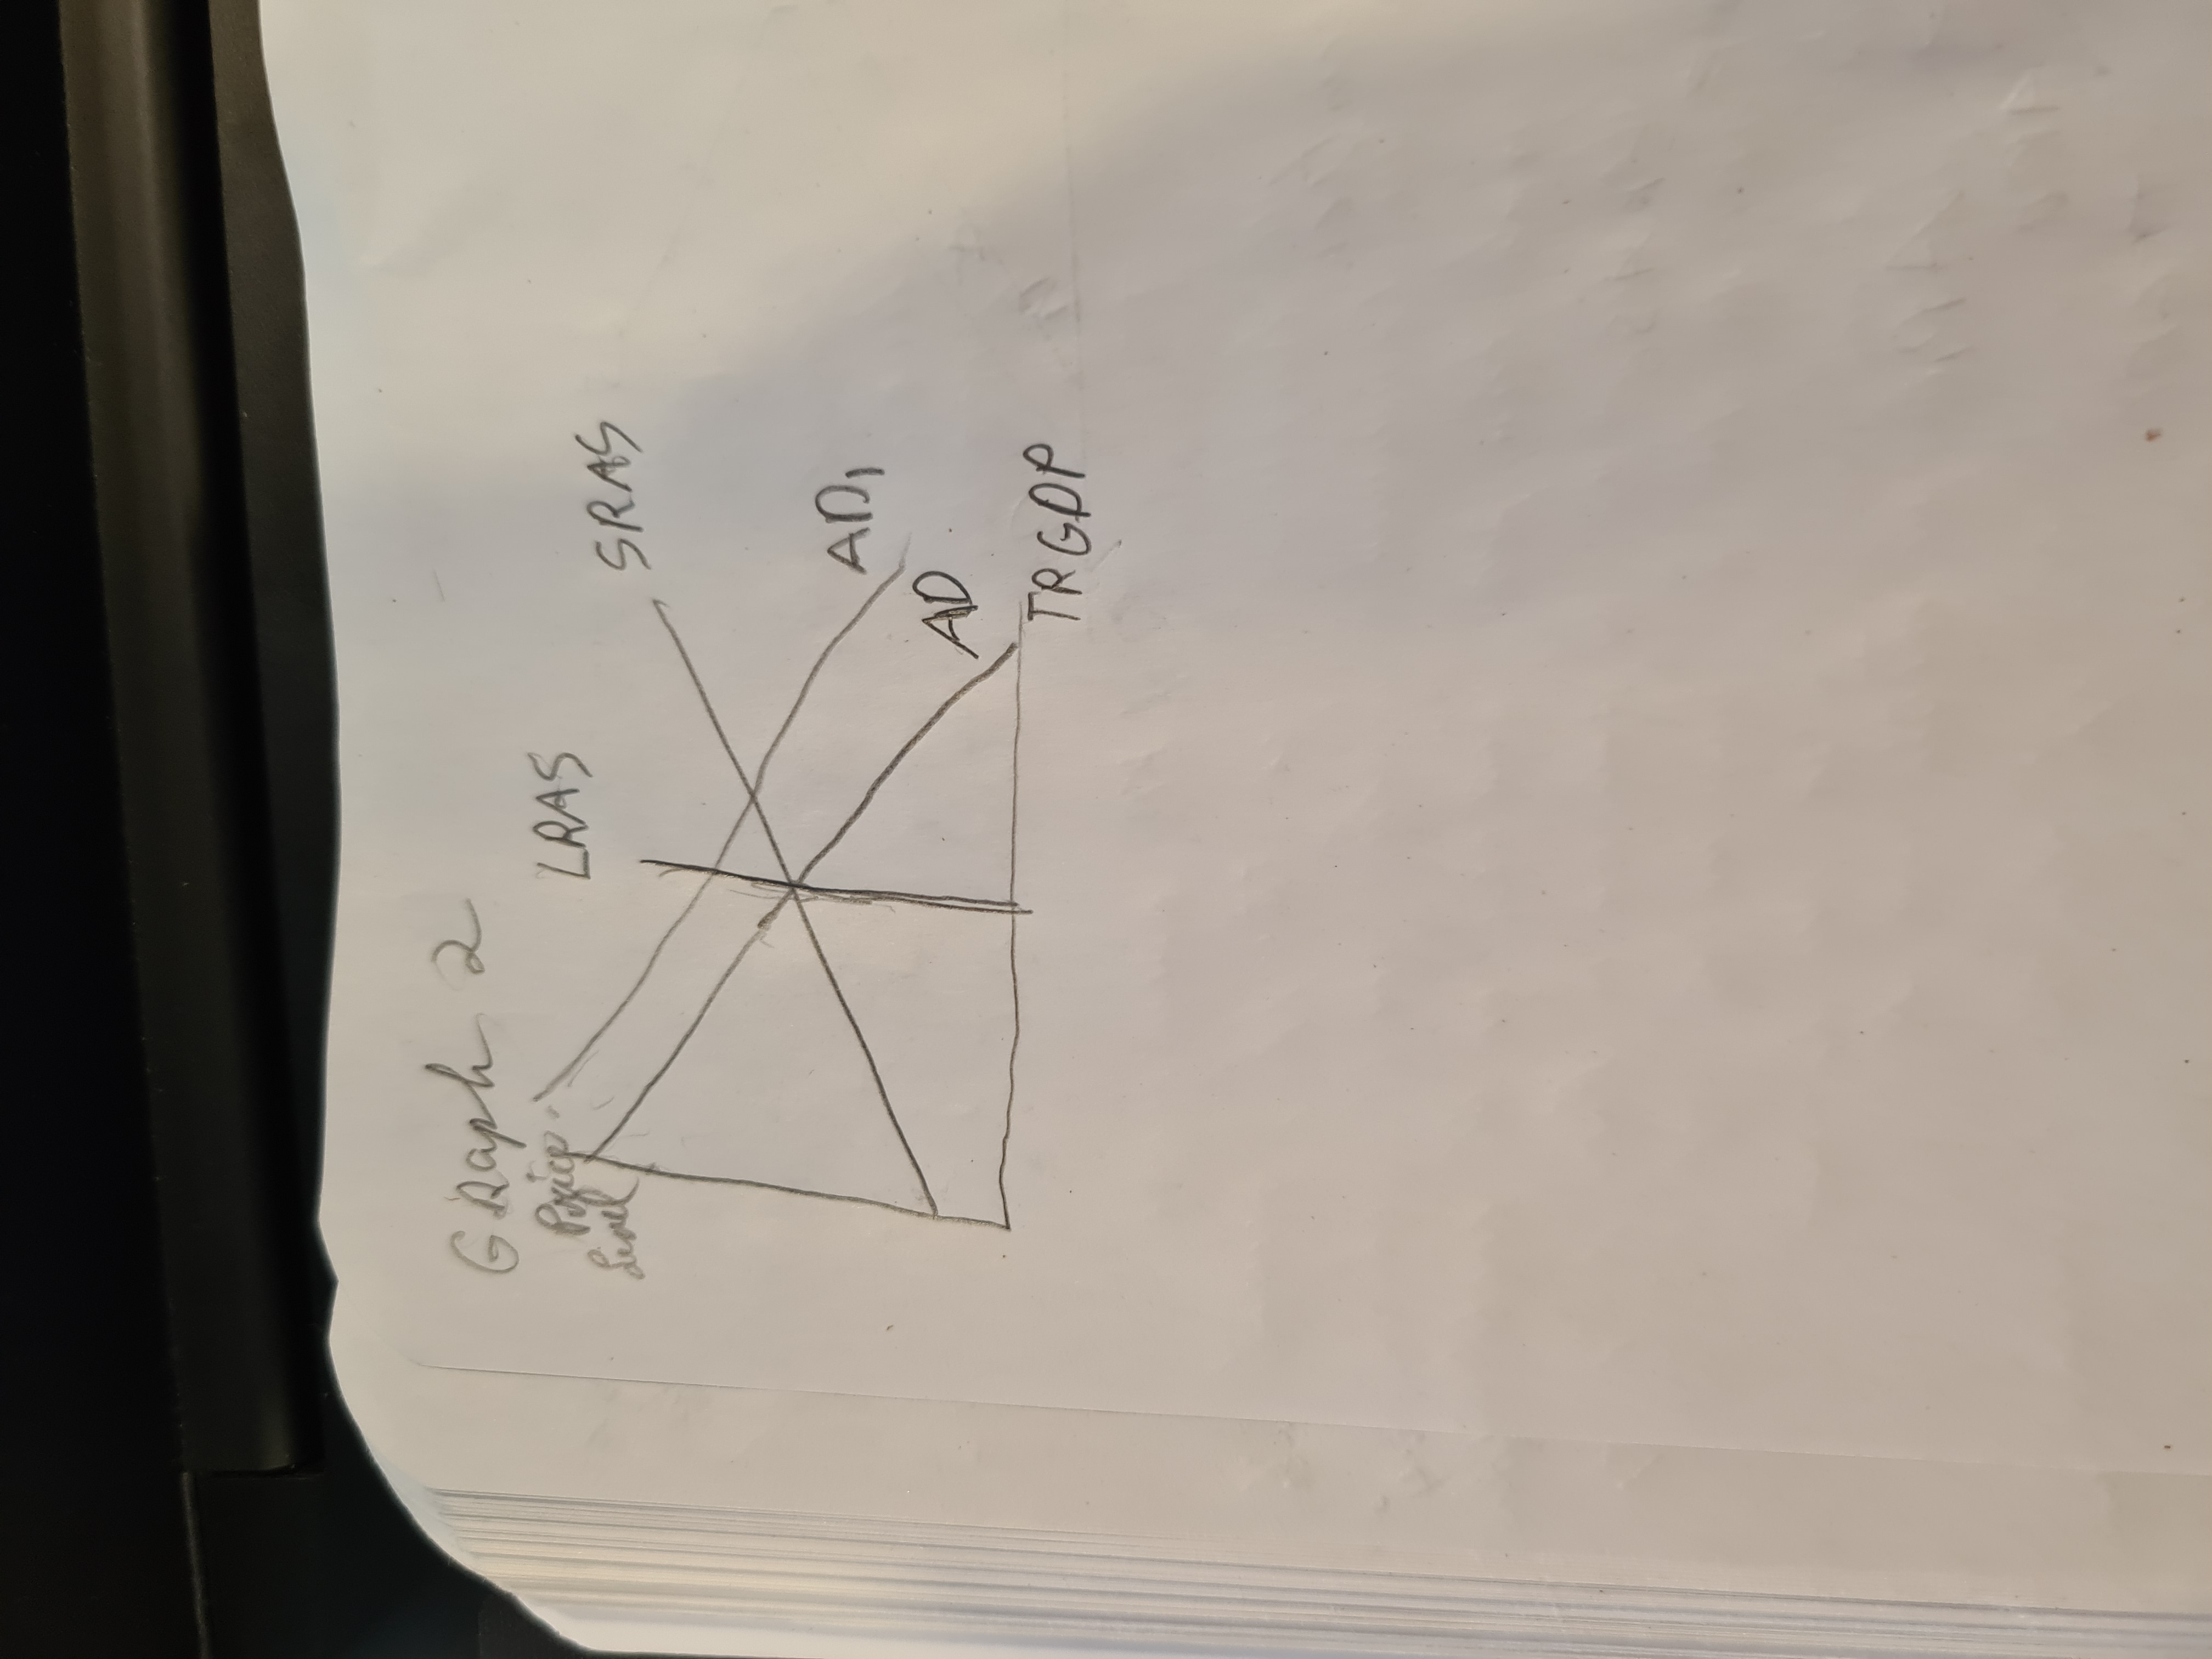 Graph 2
Price
Level
LRAS
SRAS
AD1
AD
TRGDP